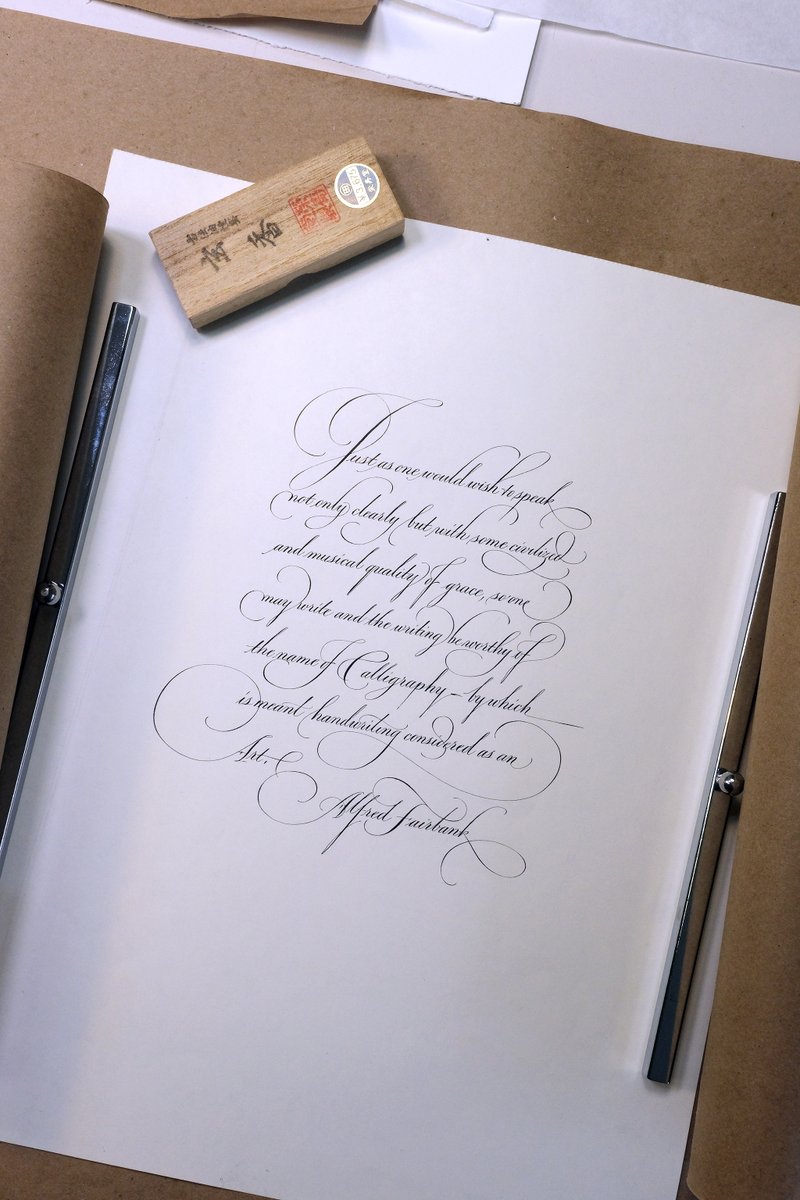 Just as one would wish to speak
not only clearly but with some civilized
and musical quality of grace, so one
may write and the writing be worthy of
the name of Calligraphy – by which
is meant handwriting considered as an
Art.
Alfred Fairbank